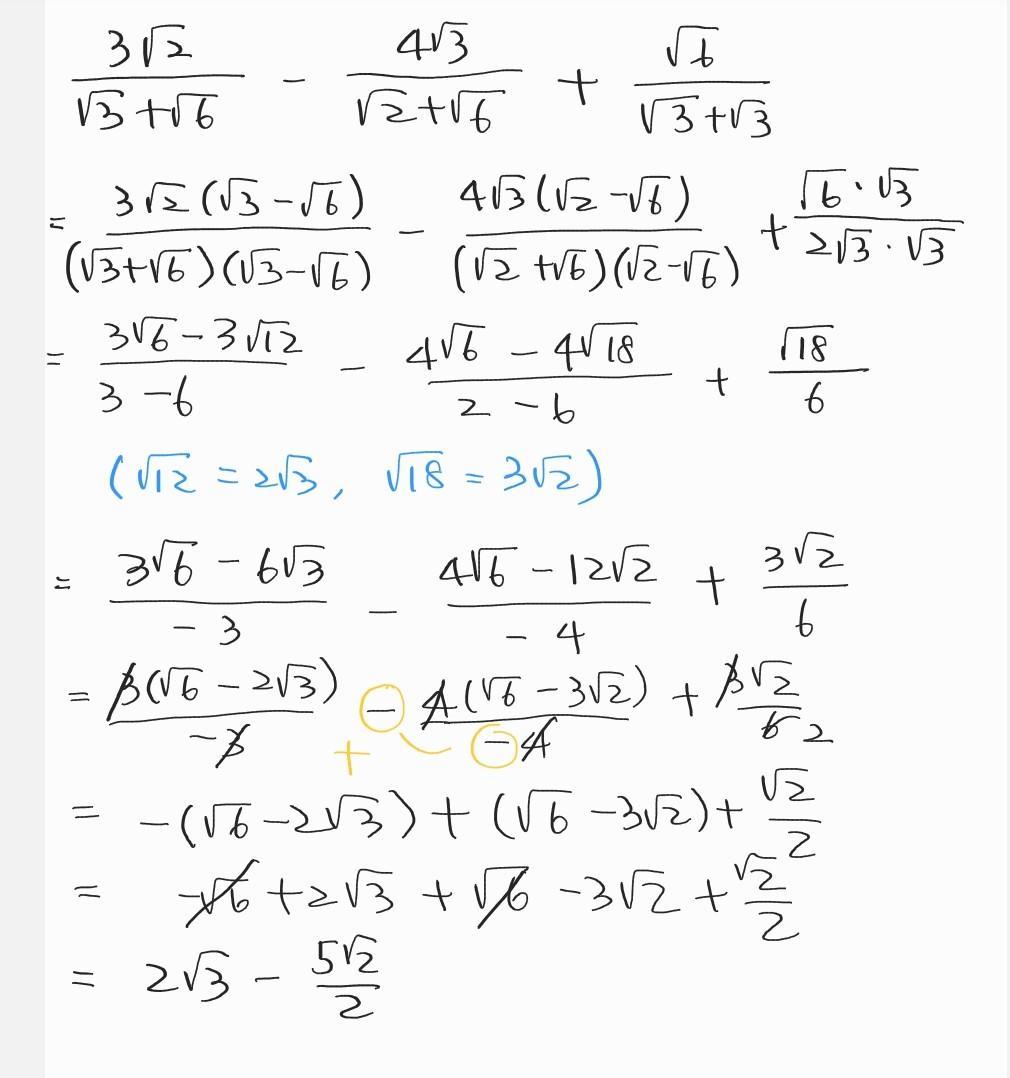 3√2/(√3+√6) - 4√3/(√2+√6) + √6/(√3+√3)
= 3√2(√3-√6)/((√3+√6)(√3-√6)) - 4√3(√2-√6)/((√2+√6)(√2-√6)) + √6·√3/(2√3·√3)
= (3√6-3√12)/(3-6) - (4√6-4√18)/(2-6) + √18/6
(√12 = 2√3, √18 = 3√2)
= (3√6-6√3)/(-3) - (4√6-12√2)/(-4) + 3√2/6
= 3(√6-2√3)/(-3) - 4(√6-3√2)/(-4) + 3√2/6 2
+
= -(√6-2√3)+(√6-3√2)+√2/2
= -√6+2√3+√6-3√2+√2/2
= 2√3 - 5√2/2